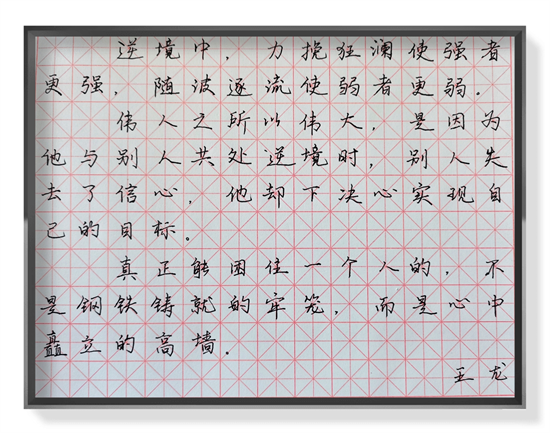 逆境中，力挽狂澜使强者
更强，随波逐流使弱者更弱。
伟人之所以伟大，是因为
他与别人共处逆境时，别人失
去了信心，他却下决心实现自
己的目标。
真正能困住一个人的，不
是钢铁铸就的牢笼，而是心中
矗立的高墙．
王龙